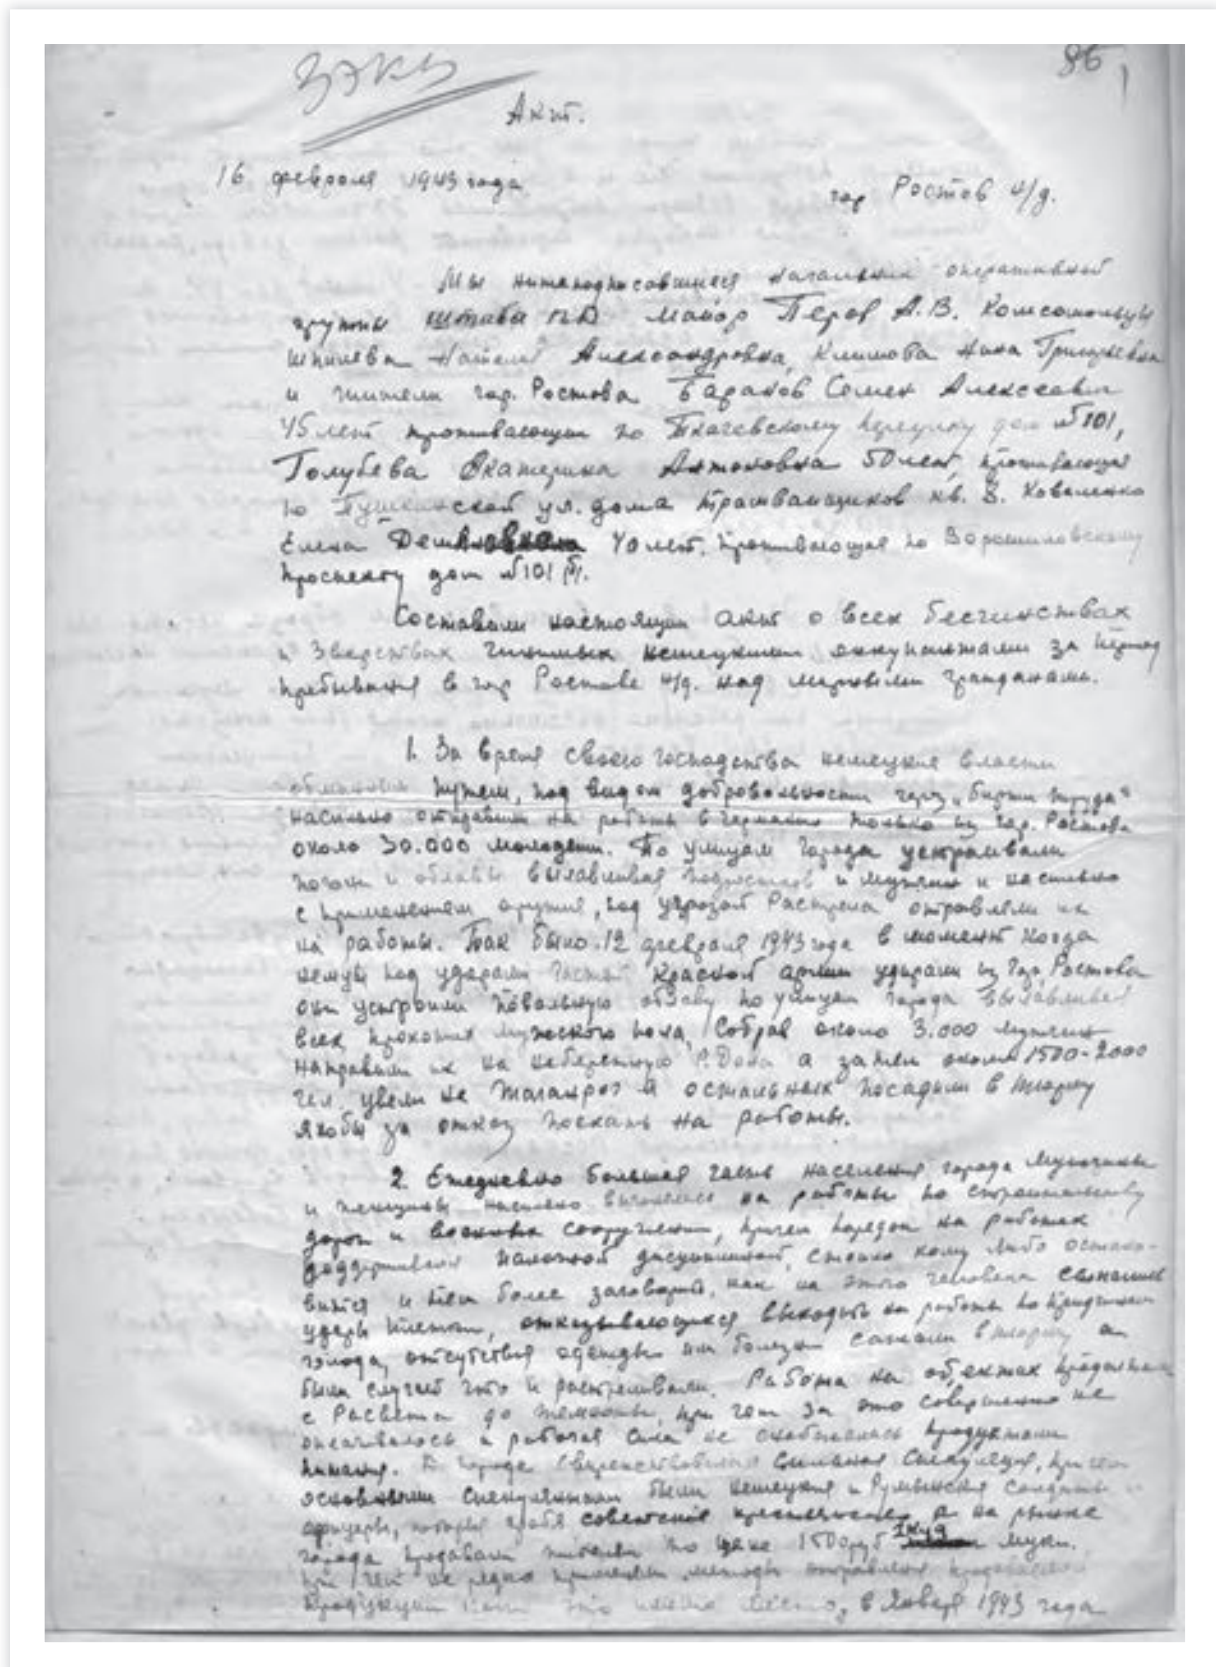 86
Акт.
16 февраля 1943 года
гор Ростов н/д.
Мы нижеподписавшиеся начальник оперативной
группы штаба майор Перов А.В. Комсомольцы
Александровна, Климова Нина Григорьевна
и жители гор. Ростова Баранов Семен Алексеевич
45 лет проживающий по Ткачевскому переулку дом №101,
Голубева Екатерина Антоновна 50 лет, проживающая
по Пушкинской ул. дома трамвайщиков кв. 3. Коваленко
Елена 40 лет. проживающая по Ворошиловскому
проспекту дом №101
Составили настоящий акт о всех бесчинствах
и зверствах чинимых немецкими оккупантами за период
пребывания в гор Ростове н/д. над мирными гражданами.
1. За время своего господства немецкие власти
обманным путем, под видом добровольности через „биржи труда"
насильно отправили на работы в Германию только из гор. Ростова
около 30.000 молодежи. По улицам города устраивали
и облавы вылавливая подростков и мужчин и насильно
с применением оружия, под угрозой Растрела отправляли их
на работы. Так было 12 февраля 1943 года в момент когда
немцы под ударами частей Красной армии удирали из гор. Ростова
они устроили повальную облаву по улицам города вылавливая
всех прохожих мужского пола, Собрав около 3.000 мужчин
направили их на набережную Р. Дона а затем около 1500-2000
чел. увели на Таганрог а остальных посадили в тюрьму
якобы за отказ поехать на работы.
2. Ежедневно большая часть населения города мужчины
и женщины насильно выгонялись на работы по строительству
дорог и военных сооружений, причем порядок на работах
поддерживался палочной дисциплиной, стоило кому либо остано-
вится и тем более заговорить, как на этого человека
удары плетки, отказывающихся выходить на работы по причинам
голода, отсутствия одежды или болезни сажали в тюрьму а
были случаи что и растреливали. Работа на объектах
с Расвета до темноты, при чем за это совершенно не
оплачивалось и рабочая сила не снабжалась продуктами
питания. В городе свирепствовала сильная спекуляция, при чем
основными спекулянтами были немецкие и Румынские солдаты и
офицеры, которые грабя советских а на рынке
города продавали жителям по цене 1500 руб 1 пуд муки.
при чем не редко применяли методы отравления
продукции это имело место, в Январе 1943 года